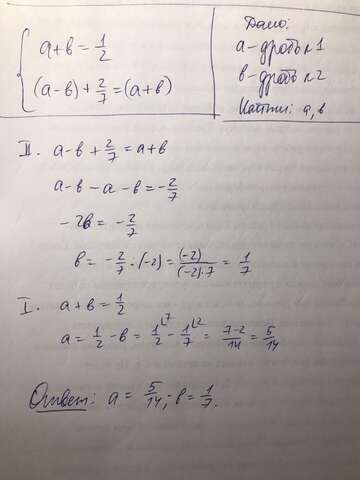 a+b=1/2
(a-b)+2/7=(a+b)
Дано:
a-дробь №1
b-дробь №2
Найти: a, b
II. a-b+2/7=a+b
a-b-a-b=-2/7
-2b=-2/7
b=-2/7·(-2)=(-2)/((-2)·7)=1/7
I. a+b=1/2
a=1/2-b=1/2⌊7-1/7⌊2=(7-2)/14=5/14
Ответ: a=5/14; b=1/7.